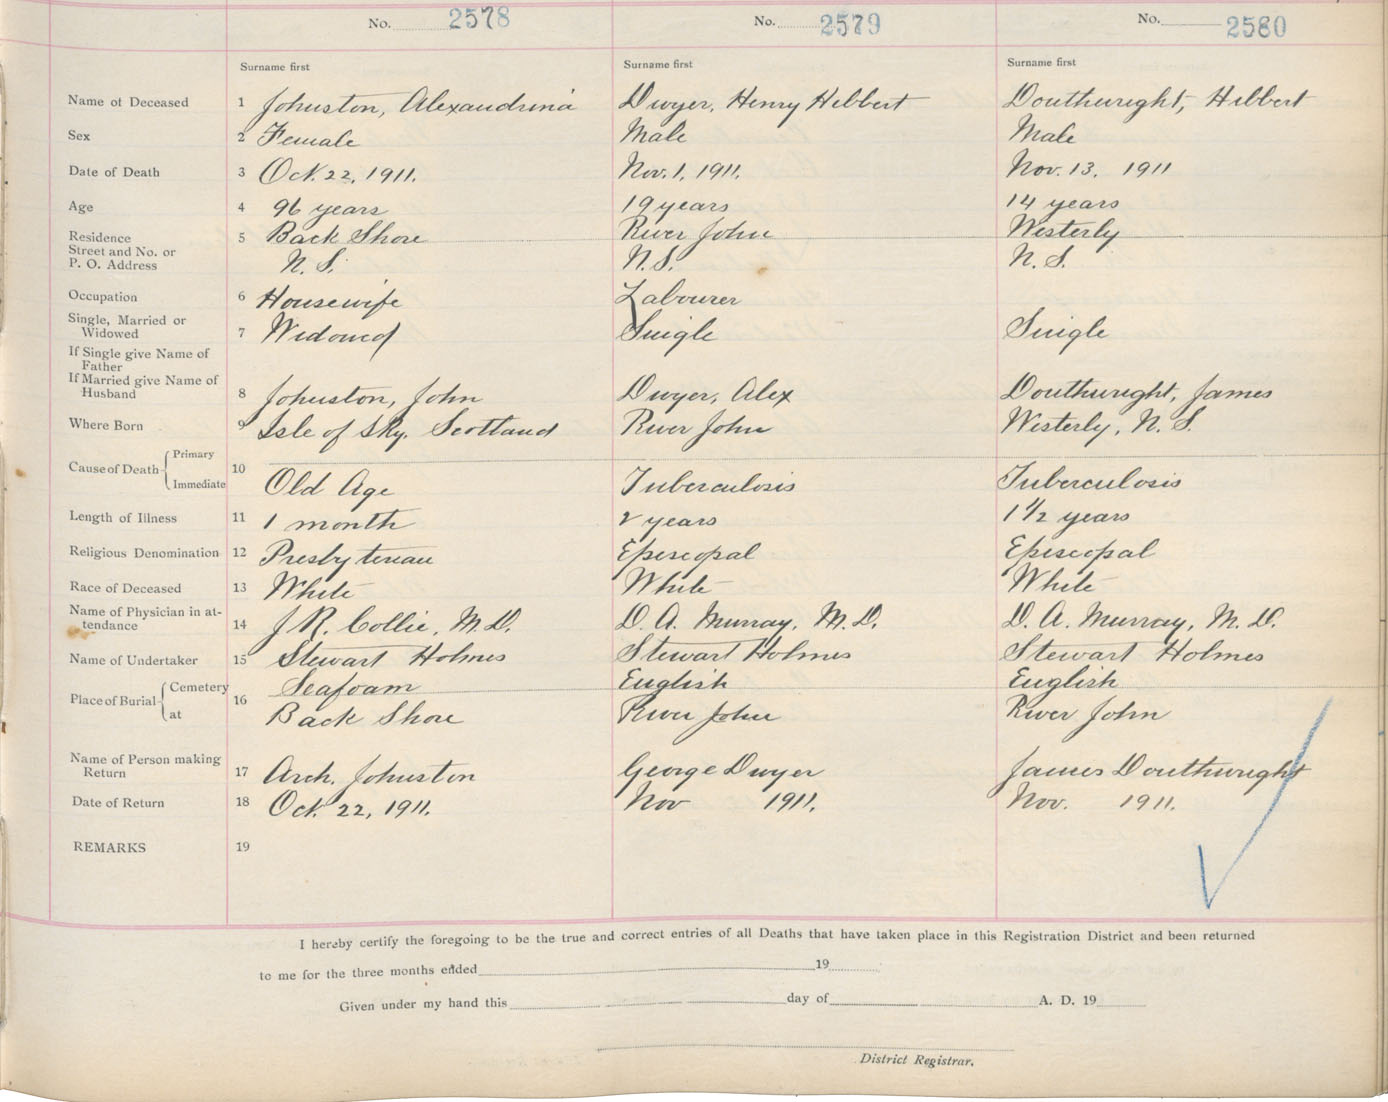 No. 2578 No. 2579 No. 2580
Surname first Surname first Surname first
Name of Deceased 1 Johnston, Alexandrina Dwyer, Henry Hibbert Douthwright, Hibbert
Sex 2 Female Male Male
Date of Death 3 Oct. 22, 1911. Nov. 1, 1911. Nov. 13, 1911
Age 4 96 years 19 years 14 years
Residence 5 Back Shore River John Westerly
Street and No. or
P. O. Address N. S. N. S. N. S.
Occupation 6 Housewife Labourer
Single, Married or
Widowed 7 Widowed Single Single
If Single give Name of
Father
If Married give Name of
Husband 8 Johnston, John Dwyer, Alex Douthwright, James
Where Born 9 Isle of Sky, Scotland River John Westerly, N. S.
Cause of Death Primary
Immediate 10 Old Age Tuberculosis Tuberculosis
Length of Illness 11 1 month 2 years 1 1/2 years
Religious Denomination 12 Presbyterian Episcopal Episcopal
Race of Deceased 13 White White White
Name of Physician in at-
tendance 14 J. R. Collie, M. D. D. A. Murray, M. D. D. A. Murray, M. D.
Name of Undertaker 15 Stewart Holmes Stewart Holmes Stewart Holmes
Place of Burial Cemetery 16 Seafoam English English
at Back Shore River John River John
Name of Person making
Return 17 Arch. Johnston George Dwyer James Douthwright
Date of Return 18 Oct. 22, 1911. Nov 1911. Nov. 1911.
REMARKS 19
I hereby certify the foregoing to be the true and correct entries of all Deaths that have taken place in this Registration District and been returned
to me for the three months ended 19
Given under my hand this day of A. D. 19
District Registrar.